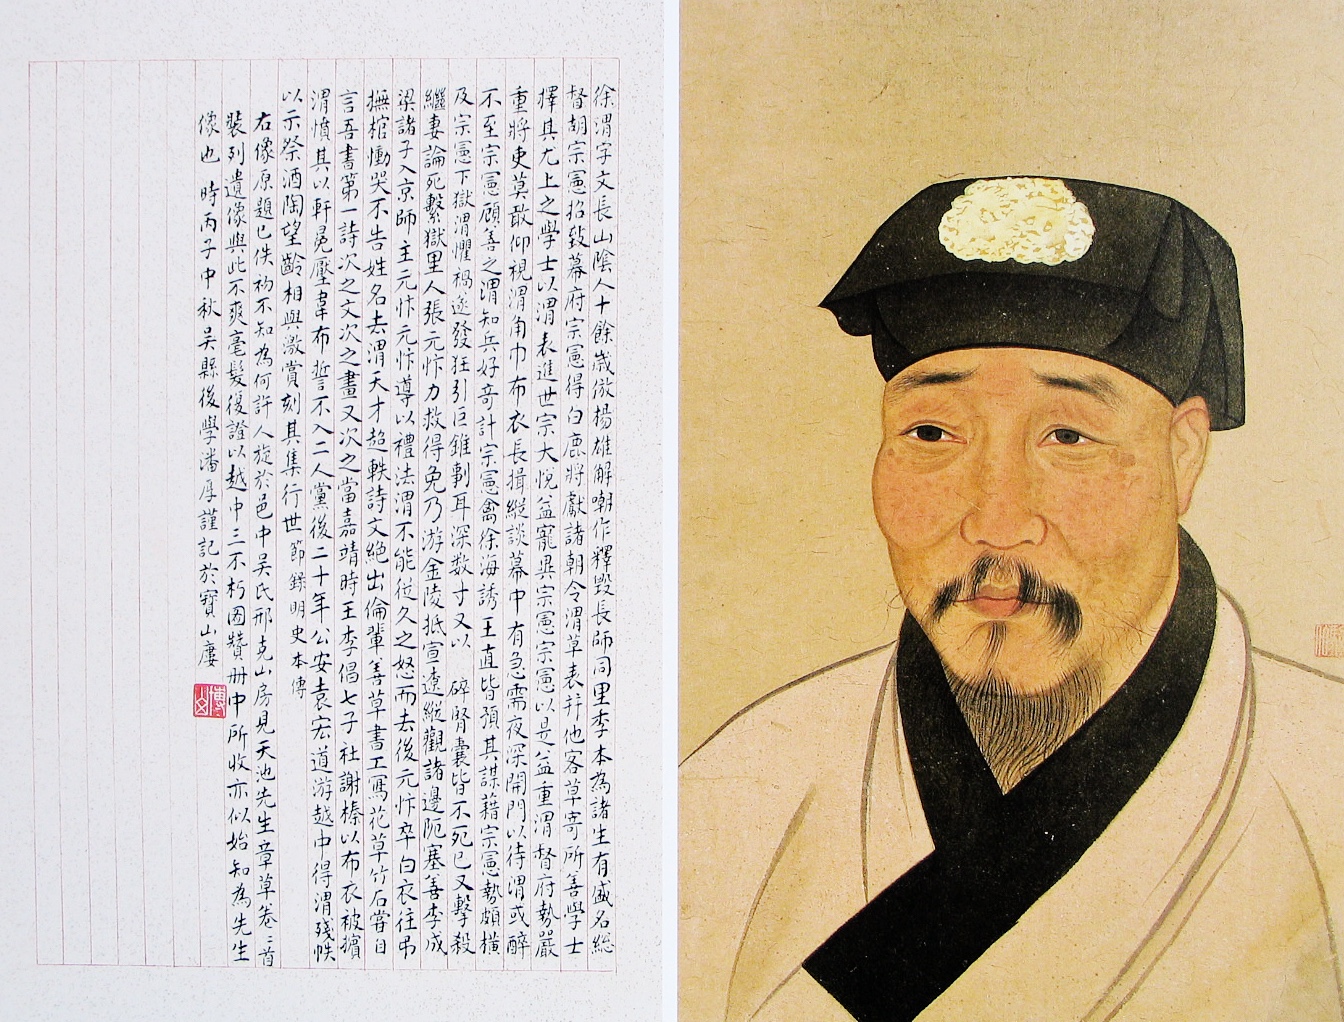 徐渭字文長山陰人十餘歲倣楊雄解嘲作釋毀長師同里季本為諸生有盛名総
督胡宗憲招致幕府宗憲得白鹿將獻諸朝令渭草表并他客草寄所善學士
擇其尤上之學士以渭表進世宗大悅益寵異宗憲宗憲以是益重渭督府勢嚴
重將吏莫敢仰視渭角巾布衣長揖縱談幕中有急需夜深開門以待渭或醉
不至宗憲顧善之渭知兵好奇計宗憲禽徐海誘王直皆預其謀藉宗憲勢頗橫
及宗憲下獄渭懼禍遂發狂引巨錐剚耳深数寸又以 碎腎囊皆不死已又擊殺
繼妻論死繫獄里人張元忭力救得免乃游金陵抵宣遼縱觀諸邊阨塞善李成
梁諸子入京師主元忭元忭導以禮法渭不能從久之怒而去後元忭卒白衣往弔
撫棺慟哭不告姓名去渭天才超軼詩文絕出倫輩善草書工寫花草竹石嘗自
言吾書第一詩次之文次之畫又次之當嘉靖時王李倡七子社謝榛以布衣被擯
渭憤其以軒冕壓韋布誓不入二人黨後二十年公安袁宏道游越中得渭殘帙
以示祭酒陶望齡相與激賞刻其集行世 節錄明史本傳
右像原題已佚初不知為何許人旋於邑中吳氏邢克山房見天池先生章草卷二首
裝列遺像與此不爽毫髮復證以越中三不朽圖贊册中所收亦似始知為先生
像也 時丙子中秋吳縣後學潘厚謹記於寶山廔